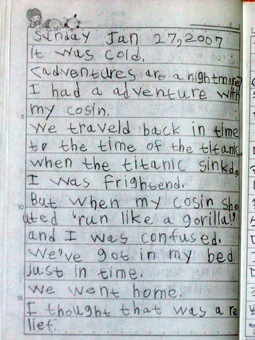 Sunday Jan 27, 2007
It was cold.
<adventures are a nightmare>
I had a adventure with
my cosin.
We traveld back in time
to the time of the titanic
when the titanic sinked,
I was frightend.
But when my cosin sho
uted "run like a gorilla!"
and I was confused.
We've got in my bed
just in time.
We went home.
I thought that was a re
lief.